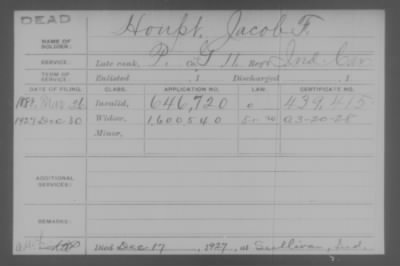 DEAD
NAME OF SOLDIER: Houpt, Jacob F.
SERVICE: Late rank, P. Co. G 11 Reg't Ind. Cav.
TERM OF SERVICE: Enlisted , 1 Discharged , 1
DATE OF FILING. CLASS. APPLICATION NO. LAW. CERTIFICATE NO.
1888, Mar 26 Invalid, 646,720 439,415
1927 Dec-30 Widow, 1,600540 a3-20-28
Minor,
ADDITIONAL SERVICES:
REMARKS:
Died Dec-17, 1927, at Sullivan, Ind.